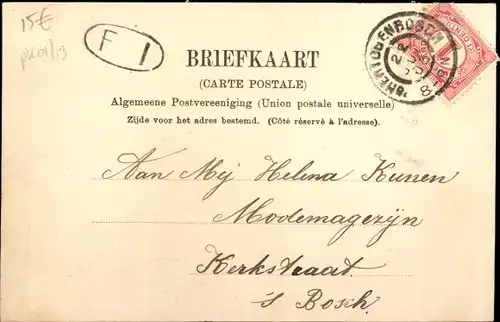 15€
pk01/13
F 1
BRIEFKAART
(CARTE POSTALE)
Algemeene Postvereeniging (Union postale universelle)
Zijde voor het adres bestemd. (Côté réservé à l'adresse).
'SHERTOGENBOSCH
Aan Mij Helena Kunen
Modemagezijn
Kerkstraat
's Bosch.